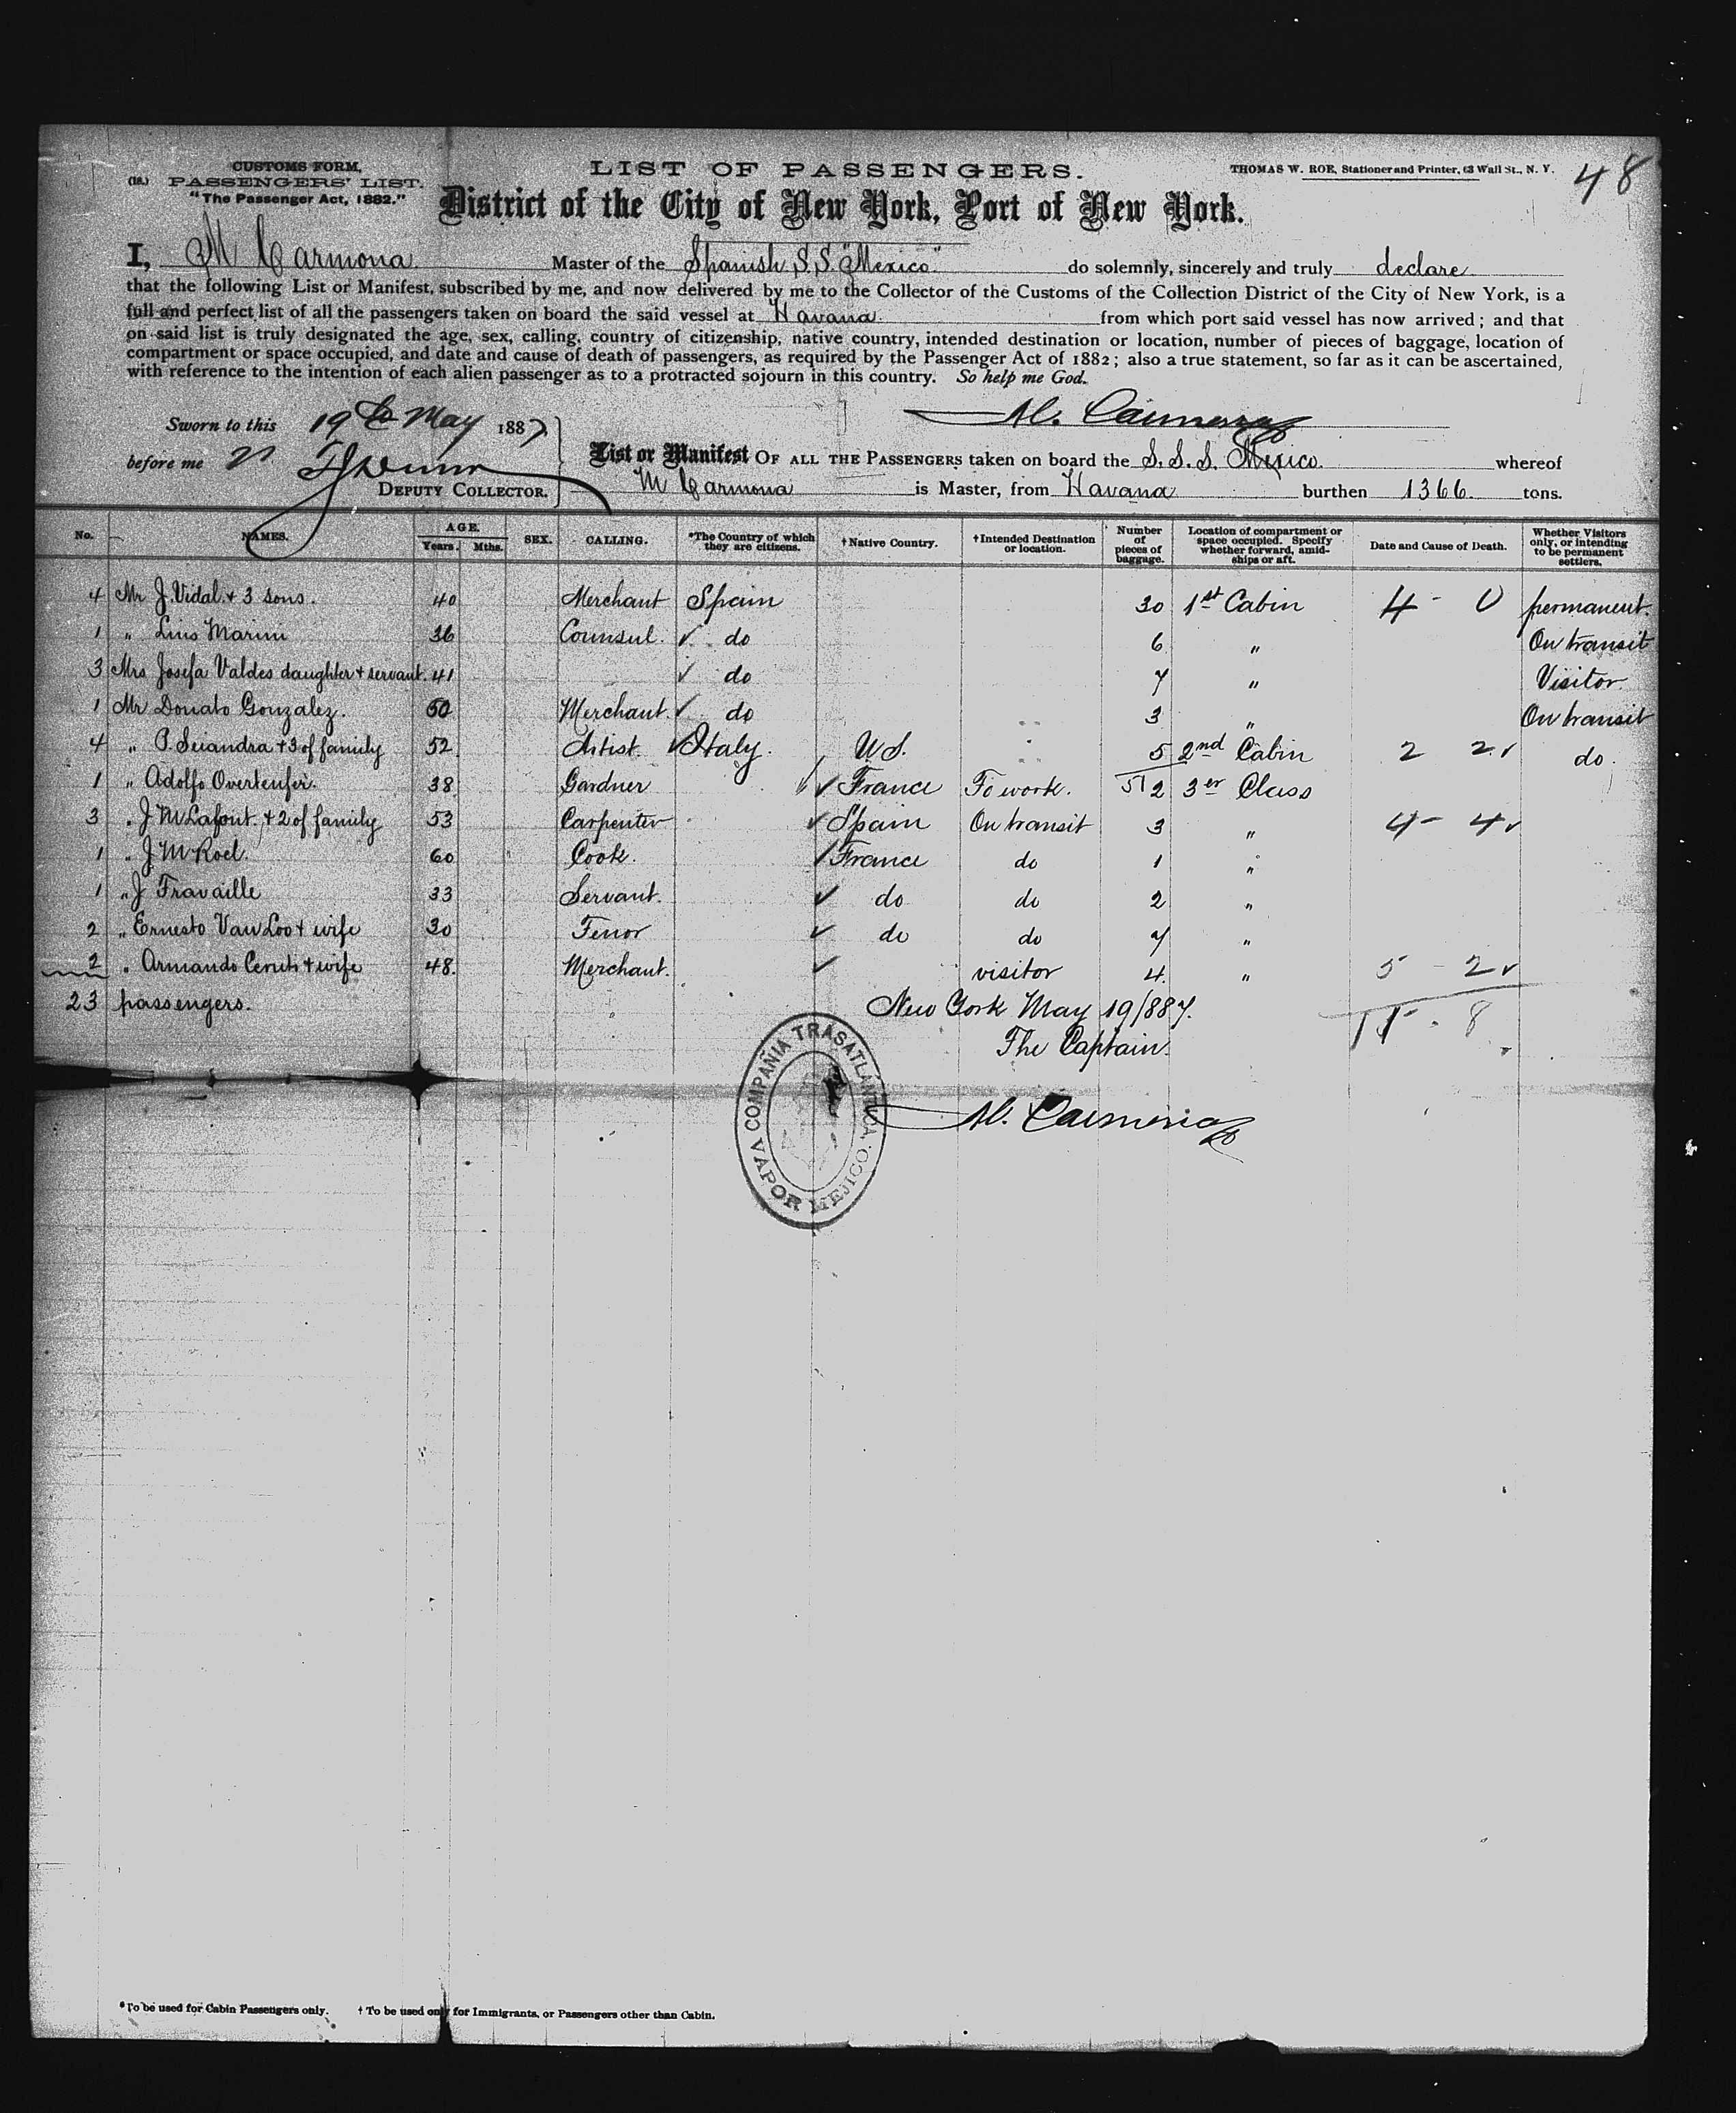 CUSTOMS FORM,
(18.) PASSENGERS' LIST.
"The Passenger Act, 1882."
LIST OF PASSENGERS.
THOMAS W. ROE, Stationer and Printer, 63 Wall St., N. Y.
48
District of the City of New York, Port of New York.
I, M Carmona Master of the Spanish S.S. "Mexico" do solemnly, sincerely and truly declare
that the following List or Manifest, subscribed by me, and now delivered by me to the Collector of the Customs of the Collection District of the City of New York, is a
full and perfect list of all the passengers taken on board the said vessel at Havana from which port said vessel has now arrived; and that
on said list is truly designated the age, sex, calling, country of citizenship, native country, intended destination or location, number of pieces of baggage, location of
compartment or space occupied, and date and cause of death of passengers, as required by the Passenger Act of 1882; also a true statement, so far as it can be ascertained,
with reference to the intention of each alien passenger as to a protracted sojourn in this country. So help me God.
Sworn to this 19th May 1887
M. Carmona
before me
DEPUTY COLLECTOR.
List or Manifest OF ALL THE PASSENGERS taken on board the S.S.S. Mexico whereof
M Carmona is Master, from Havana burthen 1366 tons.
No. NAMES. AGE. Years. Mths. SEX. CALLING. *The Country of which they are citizens. †Native Country. †Intended Destination or location. Number of pieces of baggage. Location of compartment or space occupied. Specify whether forward, amidships or aft. Date and Cause of Death. Whether Visitors only, or intending to be permanent settlers.
4 Mr J. Vidal + 3 sons. 40 Merchant Spain 30 1st Cabin 4 - 0 permanent.
1 " Luis Marini 36 Counsul. ✓ do 6 " On transit
3 Mrs Josefa Valdes daughter + servant. 41 ✓ do 7 " Visitor
1 Mr Donato Gonzalez. 50 Merchant. ✓ do 3 " On transit
4 " P. Sciandra + 3 of family 52 Artist ✓ Italy. U.S. 5 2nd Cabin 2 2 ✓ do.
1 " Adolfo Overtenfer. 38 Gardner ✓ France To work. 51 2 3er Class
3 " J M Lafont. + 2 of family 53 Carpenter ✓ Spain On transit 3 " 4 - 4 ✓
1 " J M Roel. 60 Cook. ✓ France do 1 "
1 " J Travaille 33 Servant. ✓ do do 2 "
2 " Ernesto Van Loo + wife 30 Tenor ✓ do do 7 "
2 " Armando Ceruti + wife 48. Merchant. ✓ visitor 4. " 5 - 2 ✓
23 passengers.
New York May 19/887.
15 - 8
The Captain.
COMPAÑIA TRASATLÁNTICA.
VAPOR MEJICO.
M. Carmona
*To be used for Cabin Passengers only. † To be used only for Immigrants, or Passengers other than Cabin.